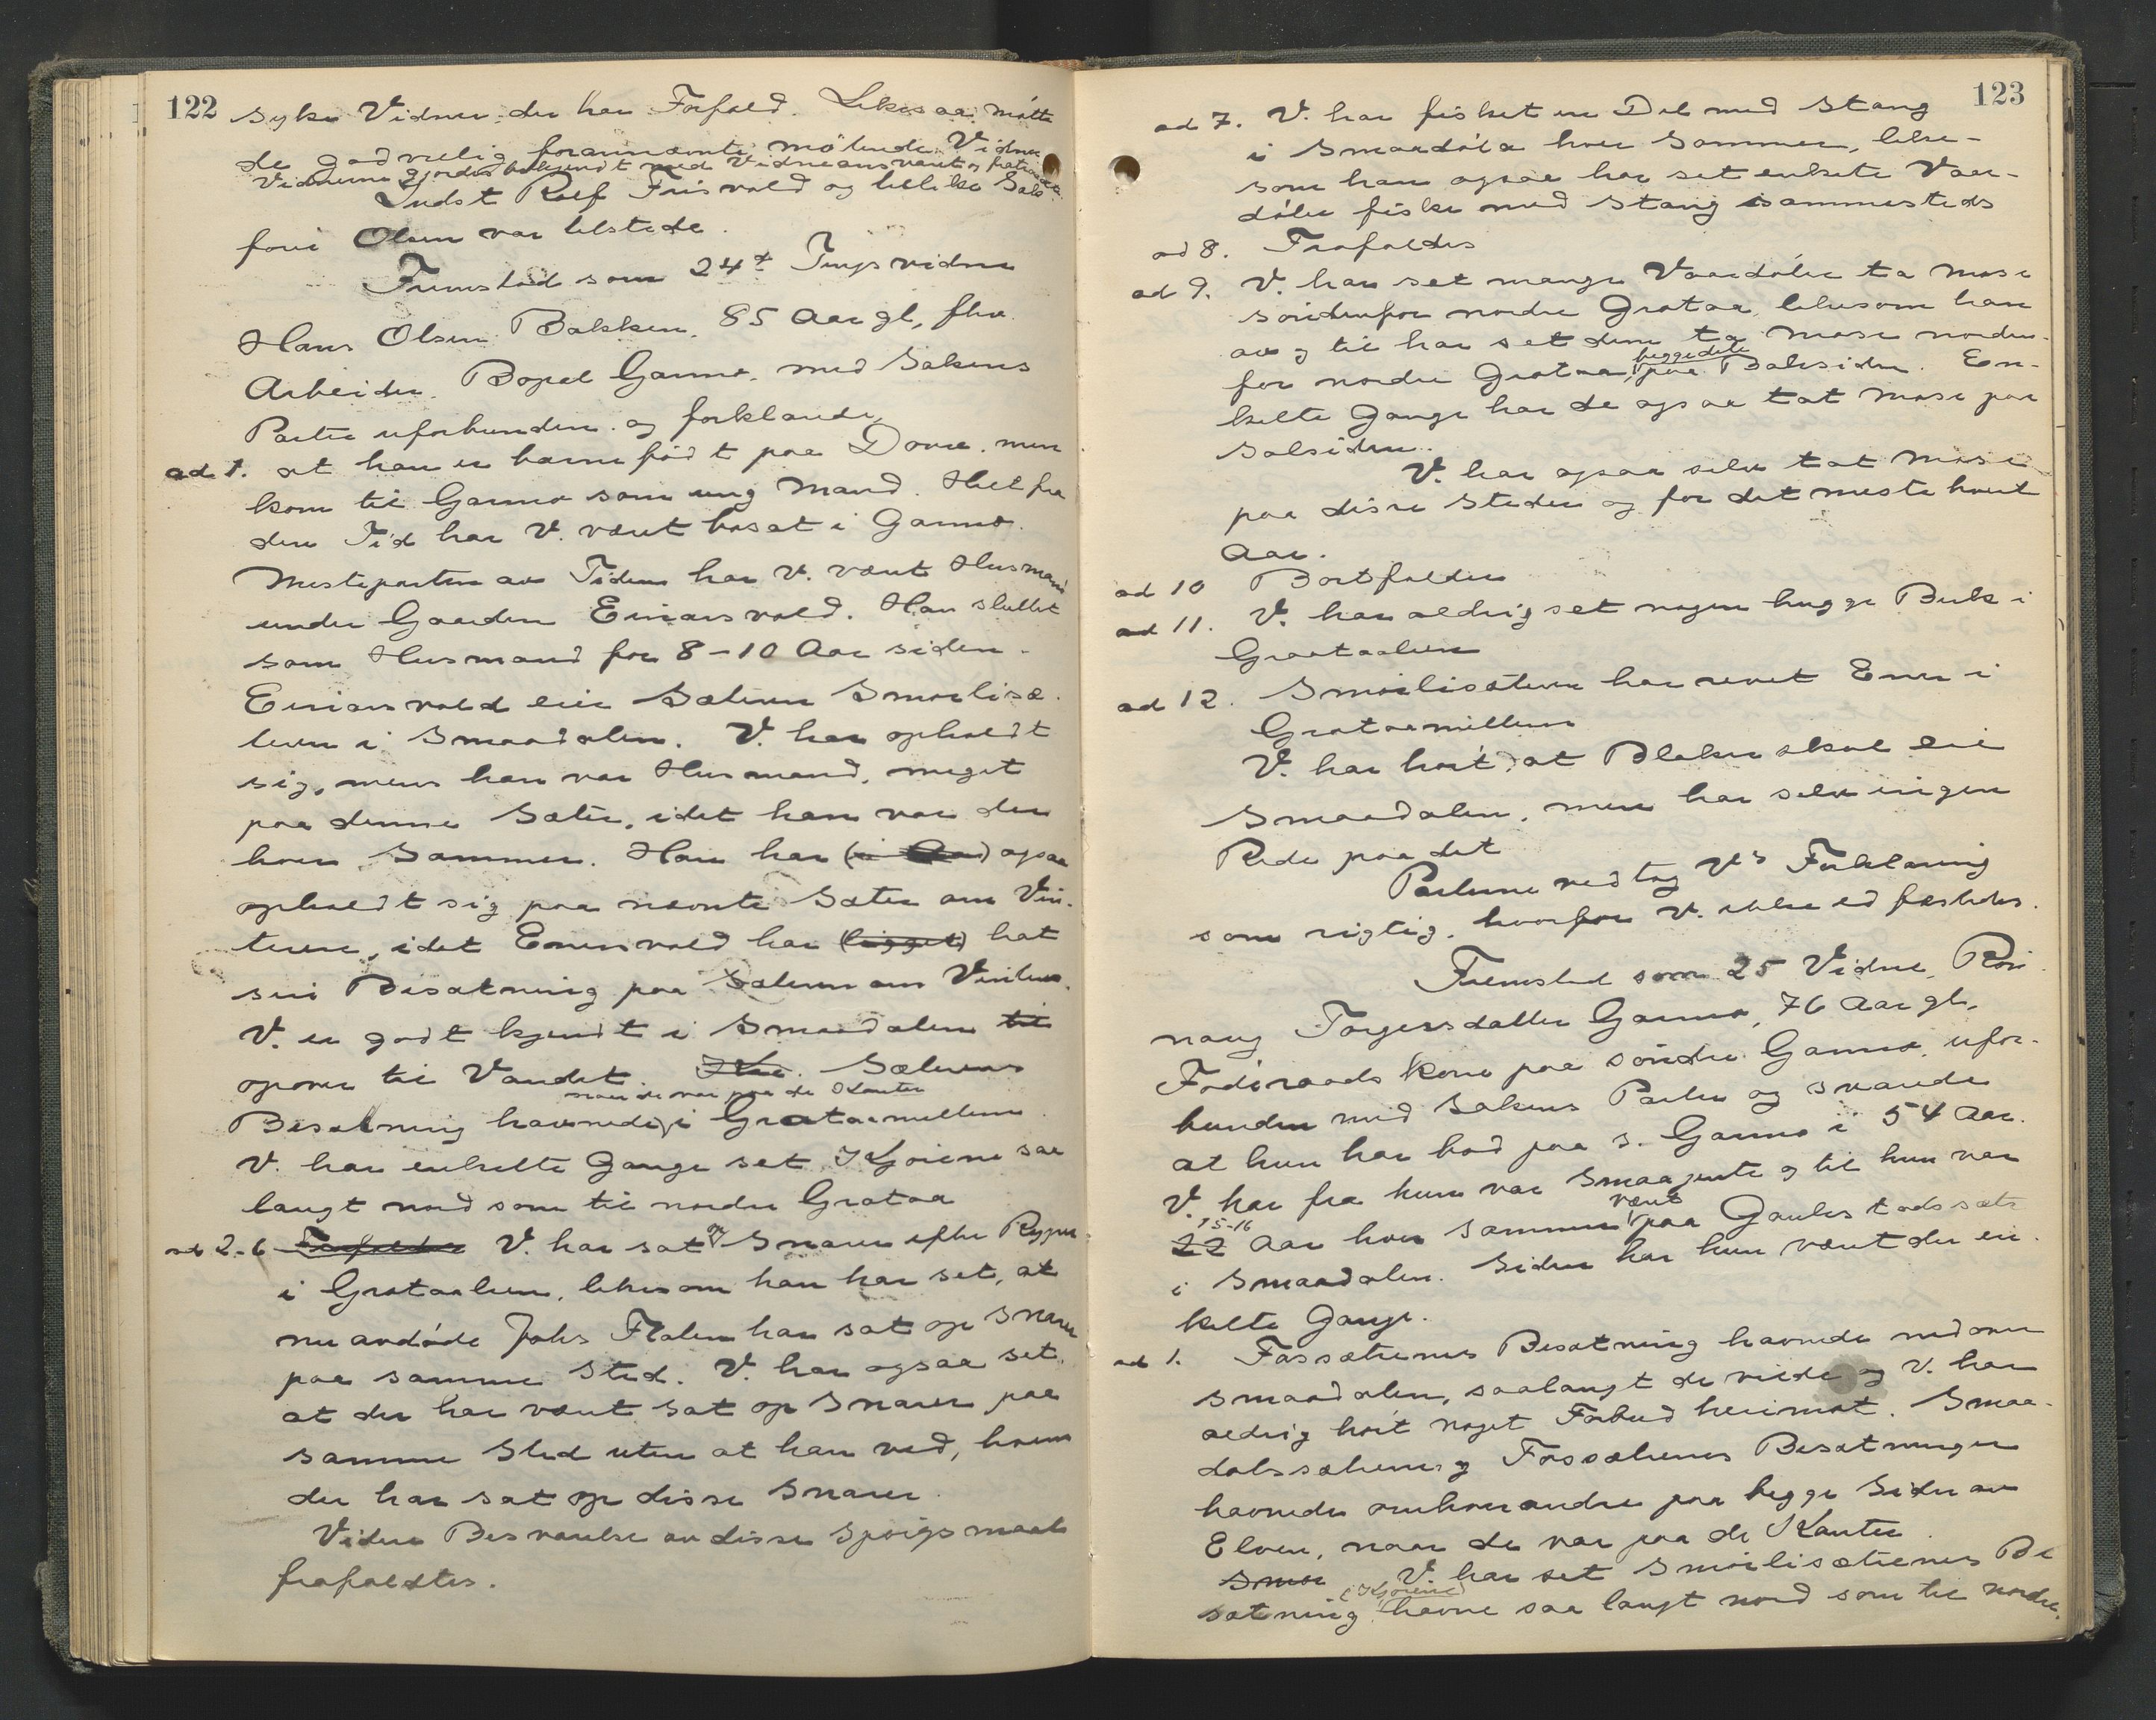 122
syke Vidner der har Forfald. Likesaa møtte
de godvillig forannævnte møtende Vidner
Vidnerne gjordes bekjendt med Vidneansvaret og fratraadte
Indst Rolf Trisvold og likeledes Sak-
fører Olsen var tilstede.
Fremstod som 24de Tingsvidne
Hans Olsen Bakken, 85 Aar gl, fhv.
Arbeider. Bopæl Garmo. med Sakens
Parter uforbunden og forklarede
ad 1. at han er barnefødt paa Dovre men
kom til Garmo som ung Mand. Helt fra
den Tid har V. været bosat i Garmo.
Mesteparten av Tiden har V. været Husmand
under Gaarden Einarsvold. Han sluttet
som Husmand for 8-10 Aar siden.
Einarsvold eier Sæteren Smørlisæ-
teren i Smaadalen. V. har opholdt
sig, mens han var Husmand, meget
paa denne Sæter, idet han var der
hver Sommer. Han har (i Aar) ogsaa
opholdt sig paa nævnte Sæter om Vin-
teren, idet Einarsvold har (ligget) hat
sin Besætning paa Sæteren om Vinteren.
V. er godt kjendt i Smaadalen til
opover til Vandet. Sæterens
naar de var paa de Kanter
Besætning havnede i Grotaamellem
V. har enkelte Gange set Kjørene saa
langt nord som til nordre Grotaa
ad 2-6 Frafaldes V. har sat op Snarer efter Ryper
i Grotaalien, likesom han har set, at
nu avdøde Johs Flaten har sat op Snarer
paa samme Sted. V. har ogsaa set,
at der har været sat op Snarer paa
samme Sted uten at han ved, hvem
der har sat op disse Snarer.
Videre Besvarelse av disse Spørgsmaal
frafaldtes.
123
ad 7. V. har fisket en Del med Stang
i Smaadøla hver Sommer, like-
som han ogsaa har set enkelte Vaar-
døler fiske med Stang sammesteds
ad 8. Frafaldes
ad 9. V. har set mange Vaardøler ta Mose
søndenfor nordre Grotaa, likesom han
av og til har set dem ta Mose norden-
for nordre Grotaa, beggedele paa Baksiden. En-
kelte Gange har de ogsaa tat Mose paa
Solsiden.
V. har ogsaa selv tat Mose
paa disse Steder og for det meste hvert
Aar.
ad 10 Bortfalder
ad 11. V. har aldrig set nogen hugge Birk i
Grotaalien
ad 12. Smørlisæteren har revet Ener i
Grotaamellem
V. har hørt, at Blaker skal eie
Smaadalen, men har selv ingen
Rede paa det
Parterne vedtog V's Forklaring
som rigtig, hvorfor V. ikke edfæstedes.
Fremstod som 25 Vidne, Røn-
naug Torgersdatter Garmo, 76 Aar gl,
Føderaadskone paa søndre Garmo, ufor-
bunden med Sakens Parter og svarede
at hun har bod paa s. Garmo i 54 Aar.
V. har fra hun var Smaajente og til hun var
15-16
22 Aar hver Sommer været paa Gaukstadsæter
i Smaadalen. Siden har hun været der en-
kelte Gange.
ad 1. Fossæterens Besætning havnede nedover
Smaadalen, saalangt de vilde og V. har
aldrig hørt noget Forbud herimot. Smaa-
dalssæterens og Fossæterens Besætninger
havnede omhverandre paa begge Sider av
Elven, naar de var paa de Kanter.
Smør V. har set Smørlisæterens Be-
(Kjørene)
sætning havne saa langt nord som til nordre